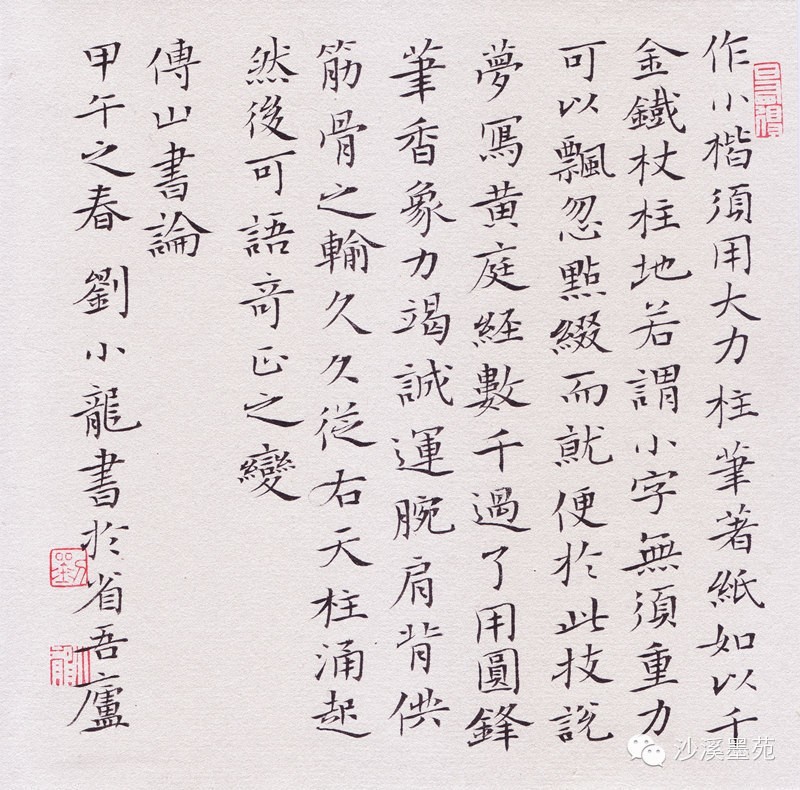 作小楷須用大力柱筆著紙如以千
金鐵杖柱地若謂小字無須重力
可以飄忽點綴而就便於此技說
夢寫黄庭經數千過了用圓鋒
筆香象力竭誠運腕肩背供
筋骨之輸久久從右天柱涌起
然後可語奇正之變
傅山書論
甲午之春 劉小龍書於省吾廬
劉
沙溪墨苑